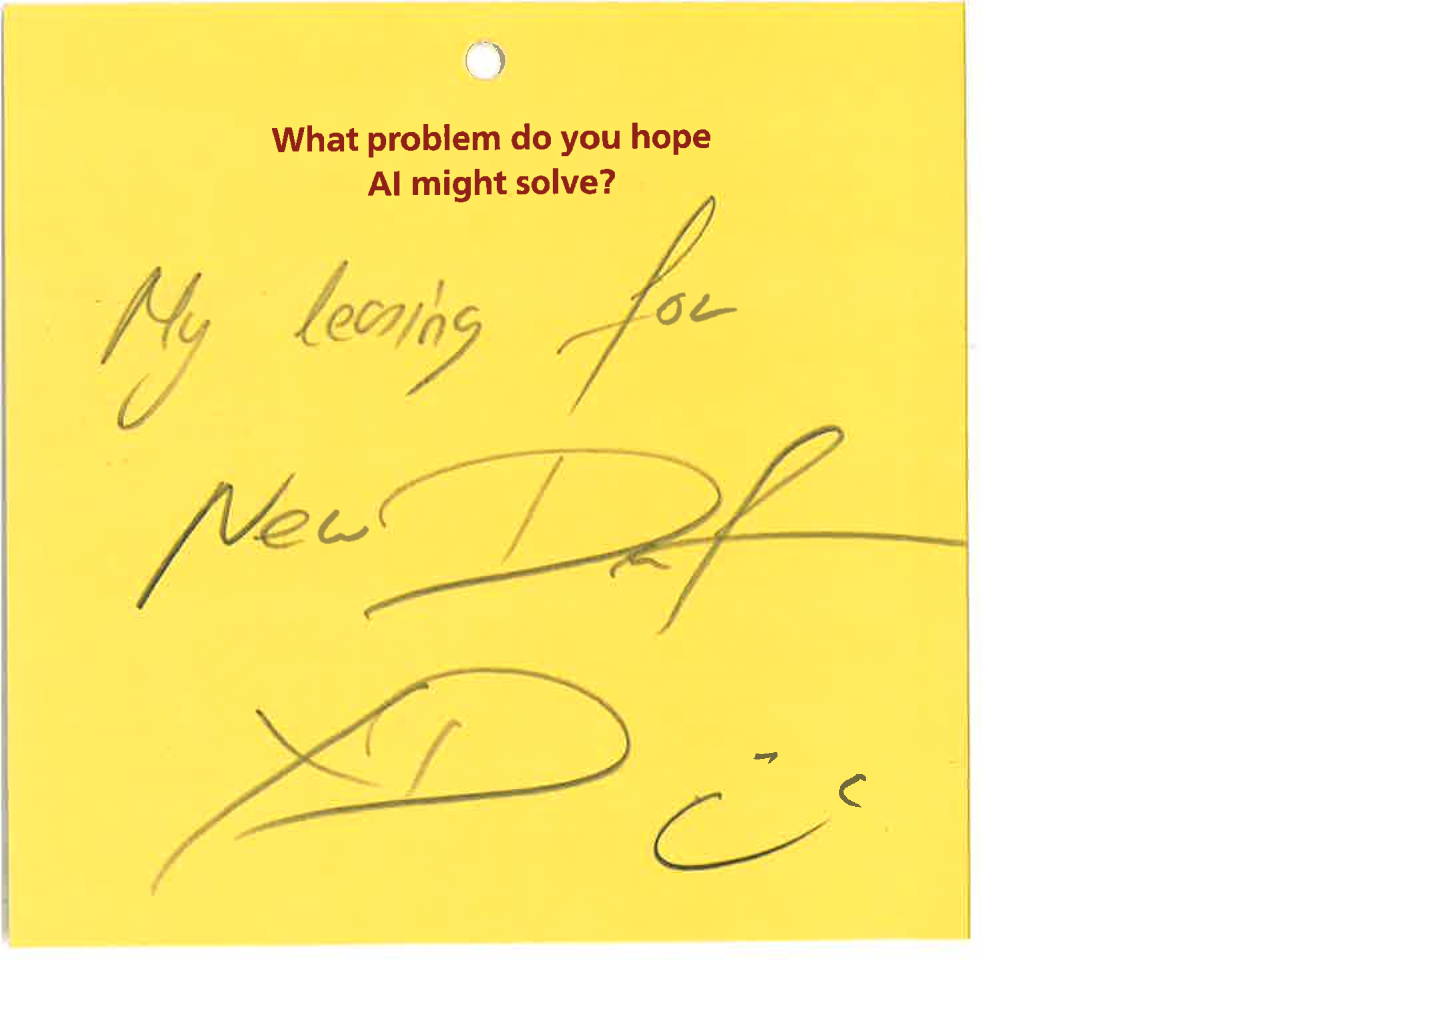 What problem do you hope
AI might solve?
My leasing for
New
XD